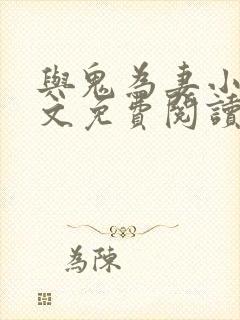 與鬼為妻小
文免費閱讀
為陳